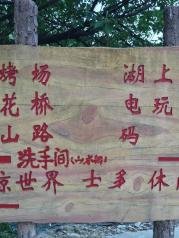 烤场 湖上
花桥 电玩
山路 码
洗手间(山水间)
京世界 士多 休